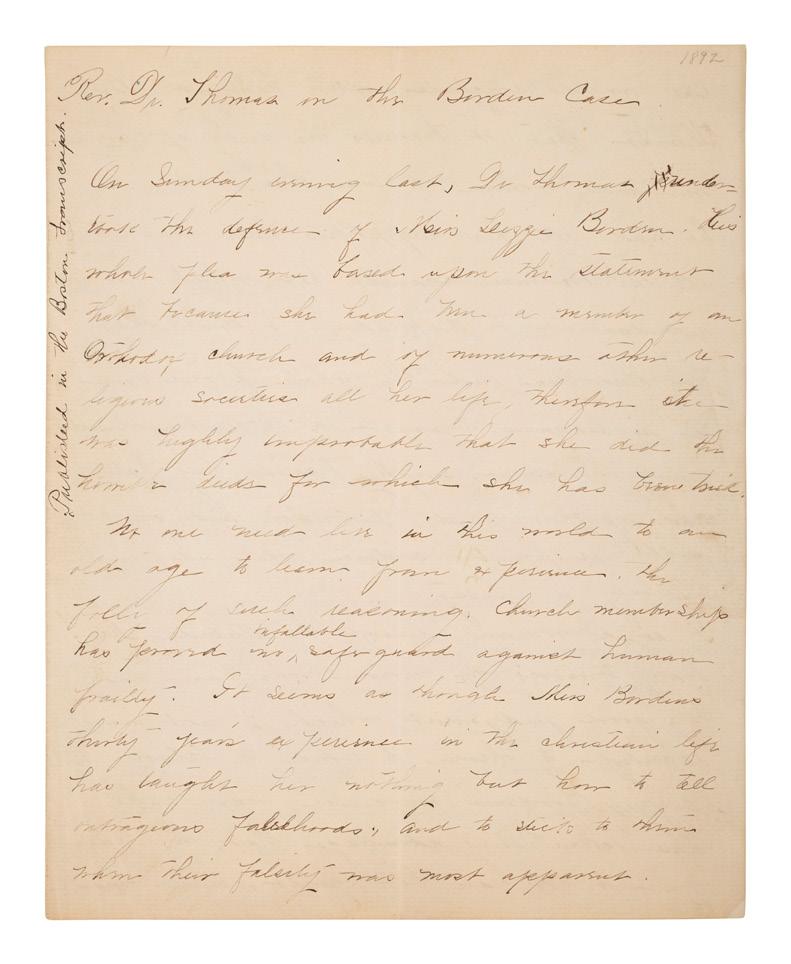 1892
Rev. Dr. Thomas on the Borden Case
Published in the Boston Transcript.
On Sunday evening last, Dr Thomas under-
took the defense of Miss Lizzie Borden. His
whole plea was based upon the statement
that because she had been a member of an
Orthodox church and of numerous other re-
ligious societies all her life, therefore it
was highly improbable that she did the
horrible deeds for which she has been tried.
No one need live in this world to an
old age to learn from experience the
folly of such reasoning. Church membership
has proved no infallable safe guard against human
frailty. It seems as though Miss Bordens
thirty years experience in the christian life
has taught her nothing but how to tell
outrageous falsehoods, and to stick to them
when their falsity was most apparent.